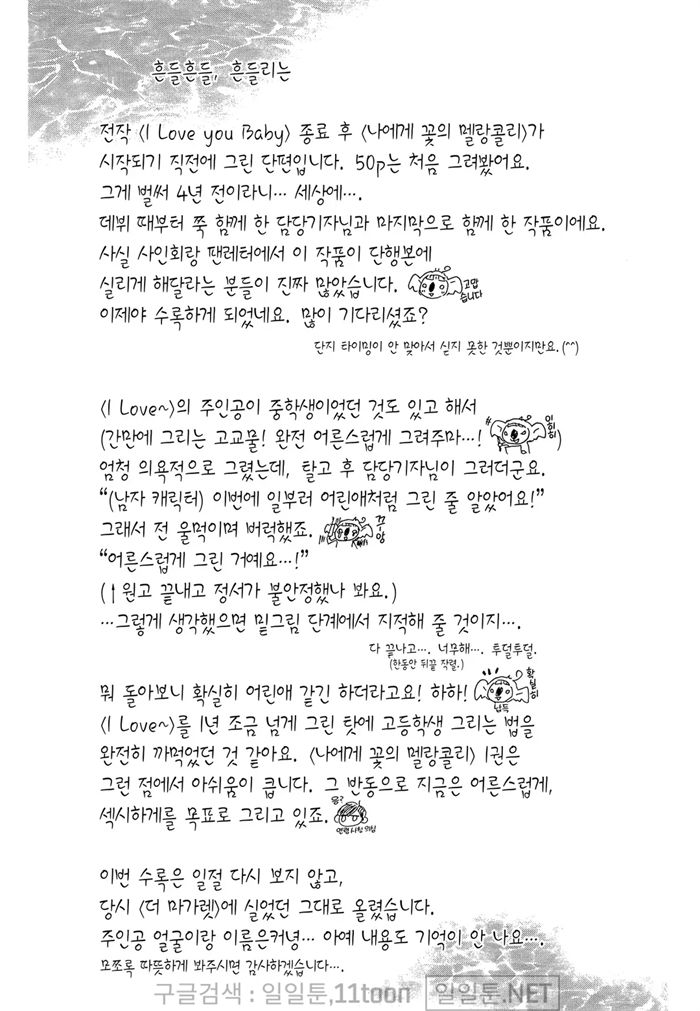 흔들흔들, 흔들리는
전작 〈I Love you Baby〉 종료 후 〈나에게 꽃의 멜랑콜리〉가
시작되기 직전에 그린 단편입니다. 50p는 처음 그려봤어요.
그게 벌써 4년 전이라니… 세상에….
데뷔 때부터 쭉 함께 한 담당기자님과 마지막으로 함께 한 작품이에요.
사실 사인회랑 팬레터에서 이 작품이 단행본에
실리게 해달라는 분들이 진짜 많았습니다. 고맙
습니다
이제야 수록하게 되었네요. 많이 기다리셨죠?
단지 타이밍이 안 맞아서 싣지 못한 것뿐이지만요.(^^)
〈I Love~〉의 주인공이 중학생이었던 것도 있고 해서
(간만에 그리는 고교물! 완전 어른스럽게 그려주마…! 이히히)
엄청 의욕적으로 그렸는데, 탈고 후 담당기자님이 그러더군요.
“(남자 캐릭터) 이번에 일부러 어린애처럼 그린 줄 알았어요!”
그래서 전 울먹이며 버럭했죠. 끄앙
“어른스럽게 그린 거예요…!”
(↑원고 끝내고 정서가 불안정했나 봐요.)
…그렇게 생각했으면 밑그림 단계에서 지적해 줄 것이지….
다 끝나고…. 너무해…. 투덜투덜.
(한동안 뒤끝 작렬.)
뭐 돌아보니 확실히 어린애 같긴 하더라고요! 하하! 확실히
납득
〈I Love~〉를 1년 조금 넘게 그린 탓에 고등학생 그리는 법을
완전히 까먹었던 것 같아요. 〈나에게 꽃의 멜랑콜리〉 1권은
그런 점에서 아쉬움이 큽니다. 그 반동으로 지금은 어른스럽게,
섹시하게를 목표로 그리고 있죠.
이번 수록은 일절 다시 보지 않고,
당시 〈더 마가렛〉에 실었던 그대로 올렸습니다.
주인공 얼굴이랑 이름은커녕… 아예 내용도 기억이 안 나요….
모쪼록 따뜻하게 봐주시면 감사하겠습니다….
구글검색 : 일일툰,11toon 일일툰.NET